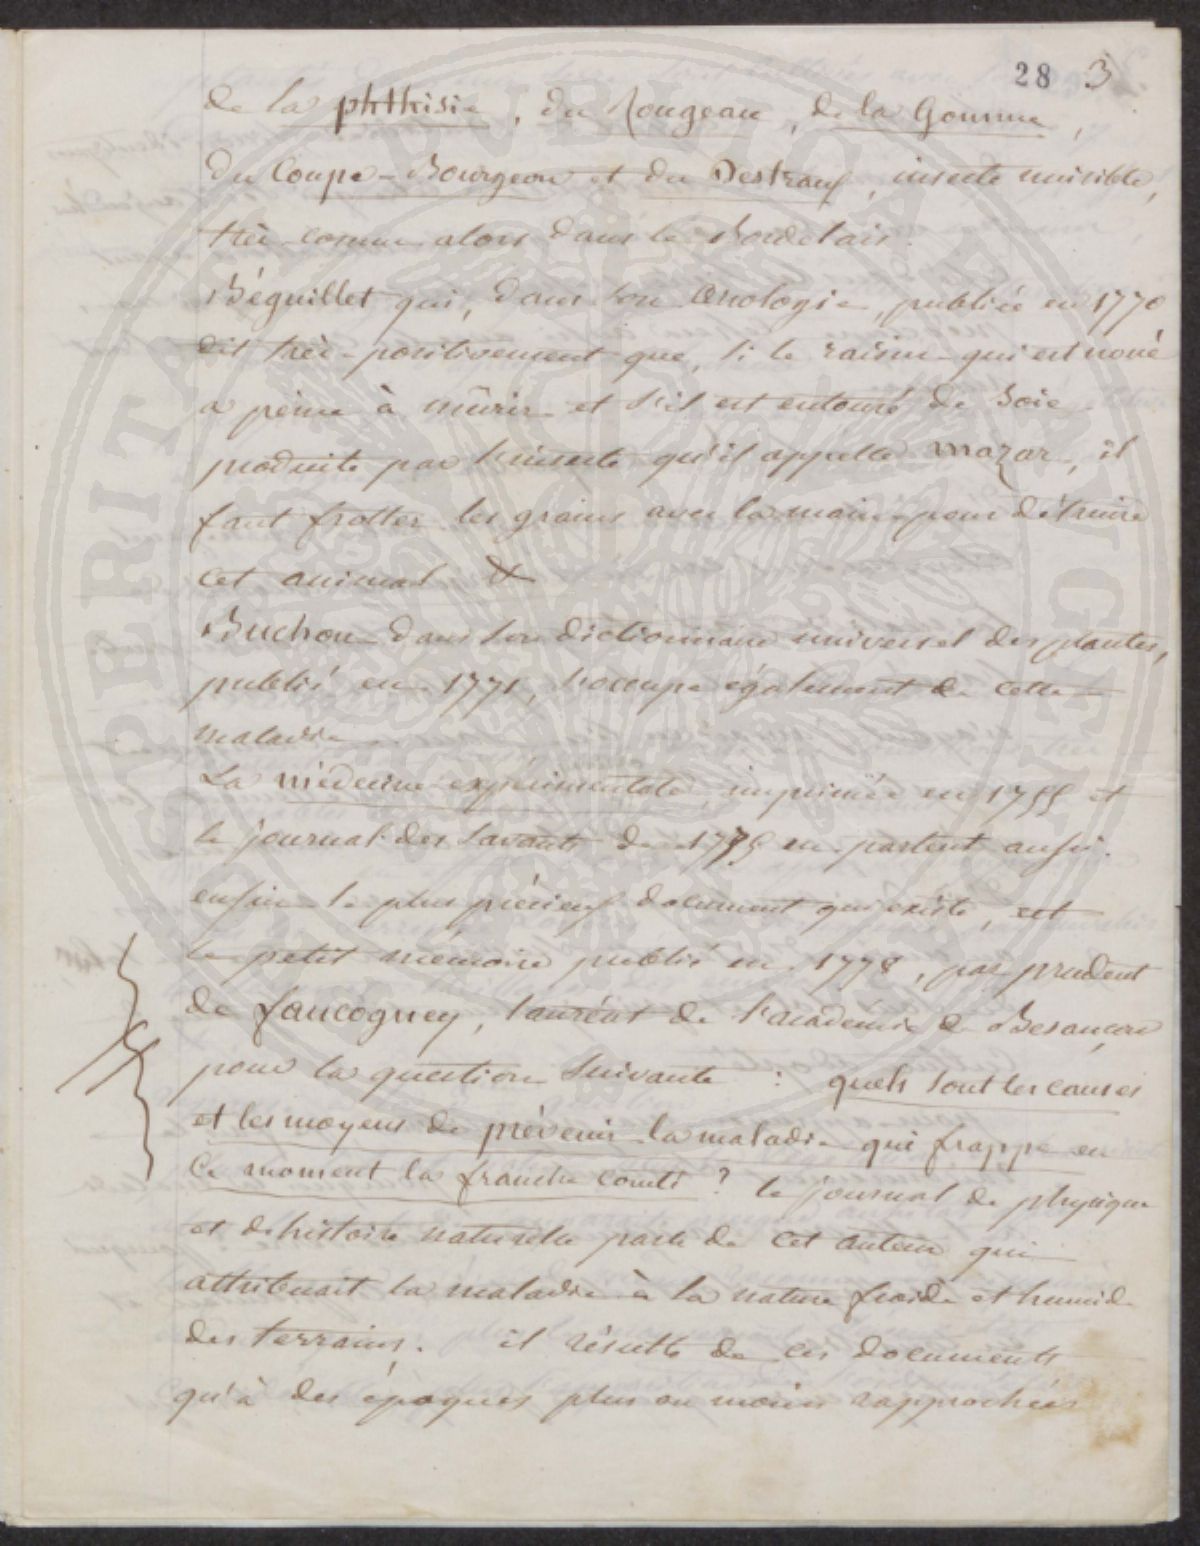 28 3
de la phthisie, du Rougeau, de la Gomme,
du Coupe-Bourgeon et du Destraux, insecte nuisible,
très-connu alors dans le Bordelais.
Béguillet qui, dans son Œnologie, publiée en 1770
dit très-positivement que, si le raisin qui est noué
a peine à mûrir et s'il est entouré de soie
produite par l'insecte qu'il appelle mazar, il
faut frotter les grains avec la main pour détruire
cet animal &
Buchon dans son dictionnaire universel des plantes,
publié en 1771, s'occupe également de cette
maladie
La médecine expérimentale, imprimée en 1755 et
le journal des Savants de en parlent aussi.
enfin le plus précieux document qui existe, est
le petit mémoire publié en 1778, par prudent
de faucogney, lauréat de l'académie de Besançon
pour la question suivante : quels sont les causes
et les moyens de prévenir la maladie qui frappe en
ce moment la franche comté ? le journal de physique
et de histoire naturelle parle de cet auteur qui
attribuait la maladie à la nature froide et humide
des terrains. il résulte de ces documents
qu'à des époques plus ou moins rapprochées
PROSPERITATI PUBLICAE AUGENDAE